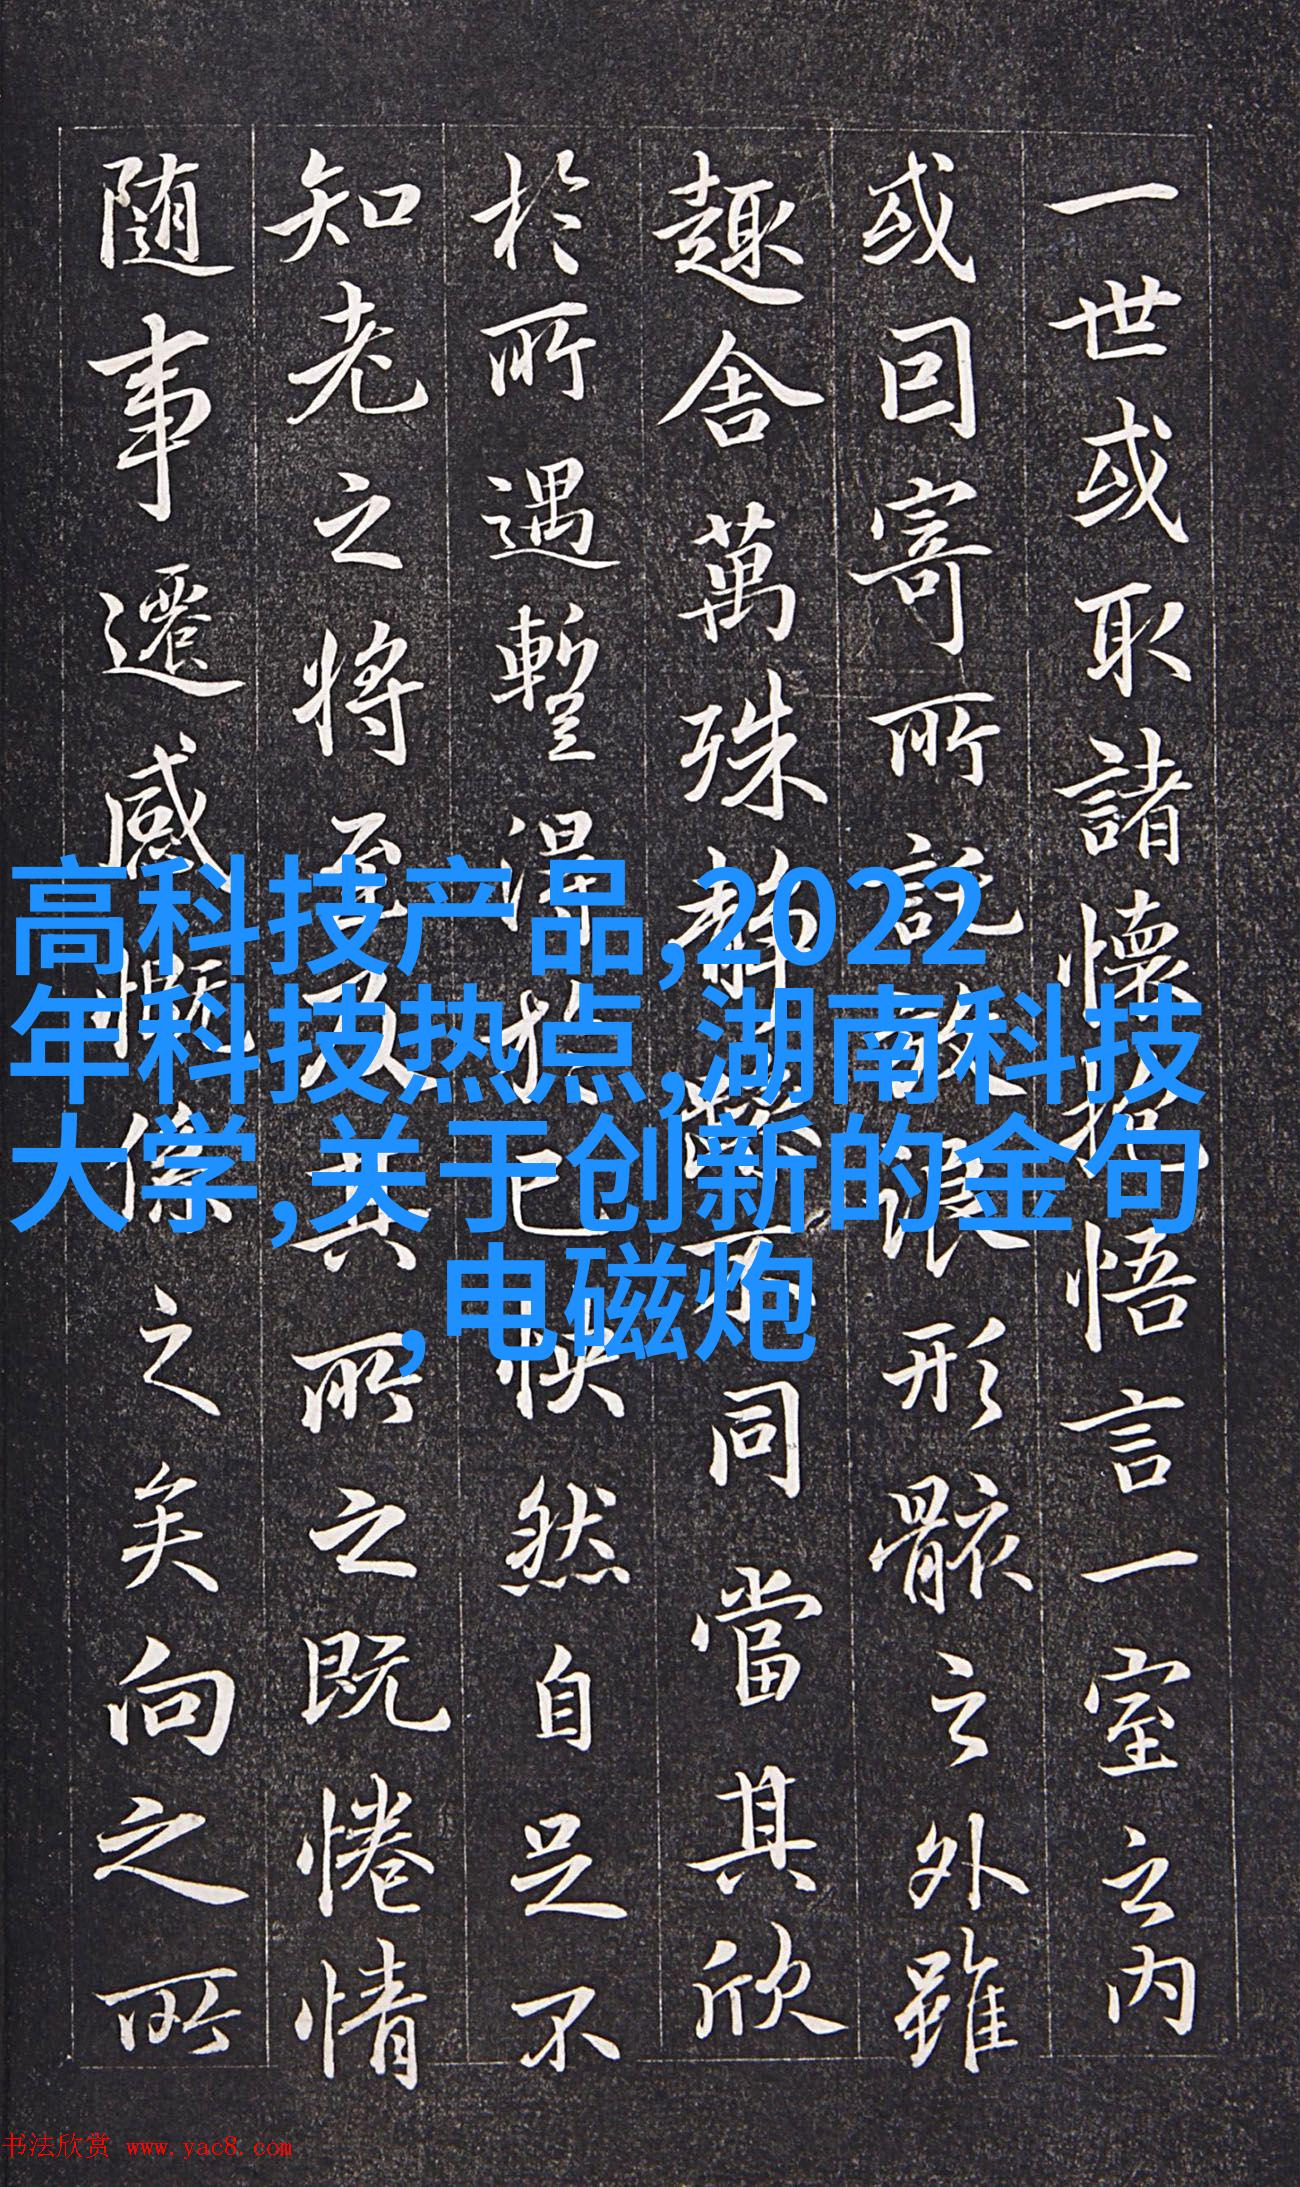 一世或取諸懷抱悟言一室之内
或因寄所託放浪形骸之外雖
趣舍萬殊静躁不同當其欣
於所遇暫得於己快然自足不
知老之将至及其所之既惓情
随事遷感慨係之矣向之所
高科技产品,2022
年科技热点,湖南科技
大学,关于创新的金句
,电磁炮
书法欣赏 www.yac8.com